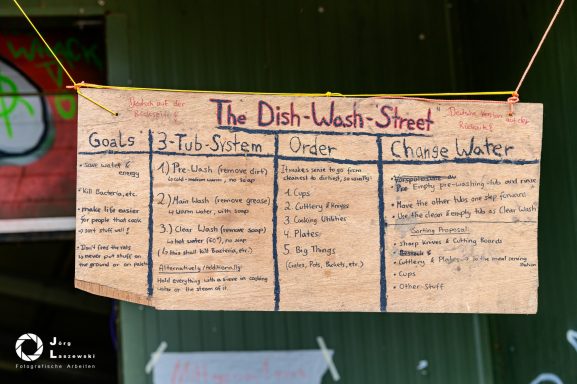 Deutsch auf der
Rückseite
The Dish-Wash-Street
Deutsche Version auf der
Rückseite
Goals
• save water &
energy
• Kill Bacteria, etc.
• make life easier
for people that cook
→ sort stuff well!
• Don't feed the rats
→ never put stuff on
the ground or on
3-Tub-System
1.) Pre-Wash (remove dirt)
→ cold-medium warm, no soap
2.) Main Wash (remove grease)
→ Warm water, with soap
3.) Clear Wash (remove soap)
→ hot water (60°), no soap
(→ this shall kill Bacteria, etc.)
Alternatively/Additionally:
Hold everything with a sieve in cooking
water or the steam of it.
Order
It makes sense to go from
cleanest to dirtiest, so usually:
1. Cups
2. Cuttlery & Knifes
3. Cooking Utilities
4. Plates
5. Big Things
(Crates, Pots, Buckets, etc.)
Change Water
• Empty pre-washing tub and rinse
• Move the other tubs one step forward
• Use the clean & empty tub as Clear Wash
Sorting Proposal:
• sharp Knives & Cutting Boards
• Cuttlery & Plates → to the meal serving
station
• Cups
• Other Stuff
Jörg
Laszewski
Fotografische Arbeiten